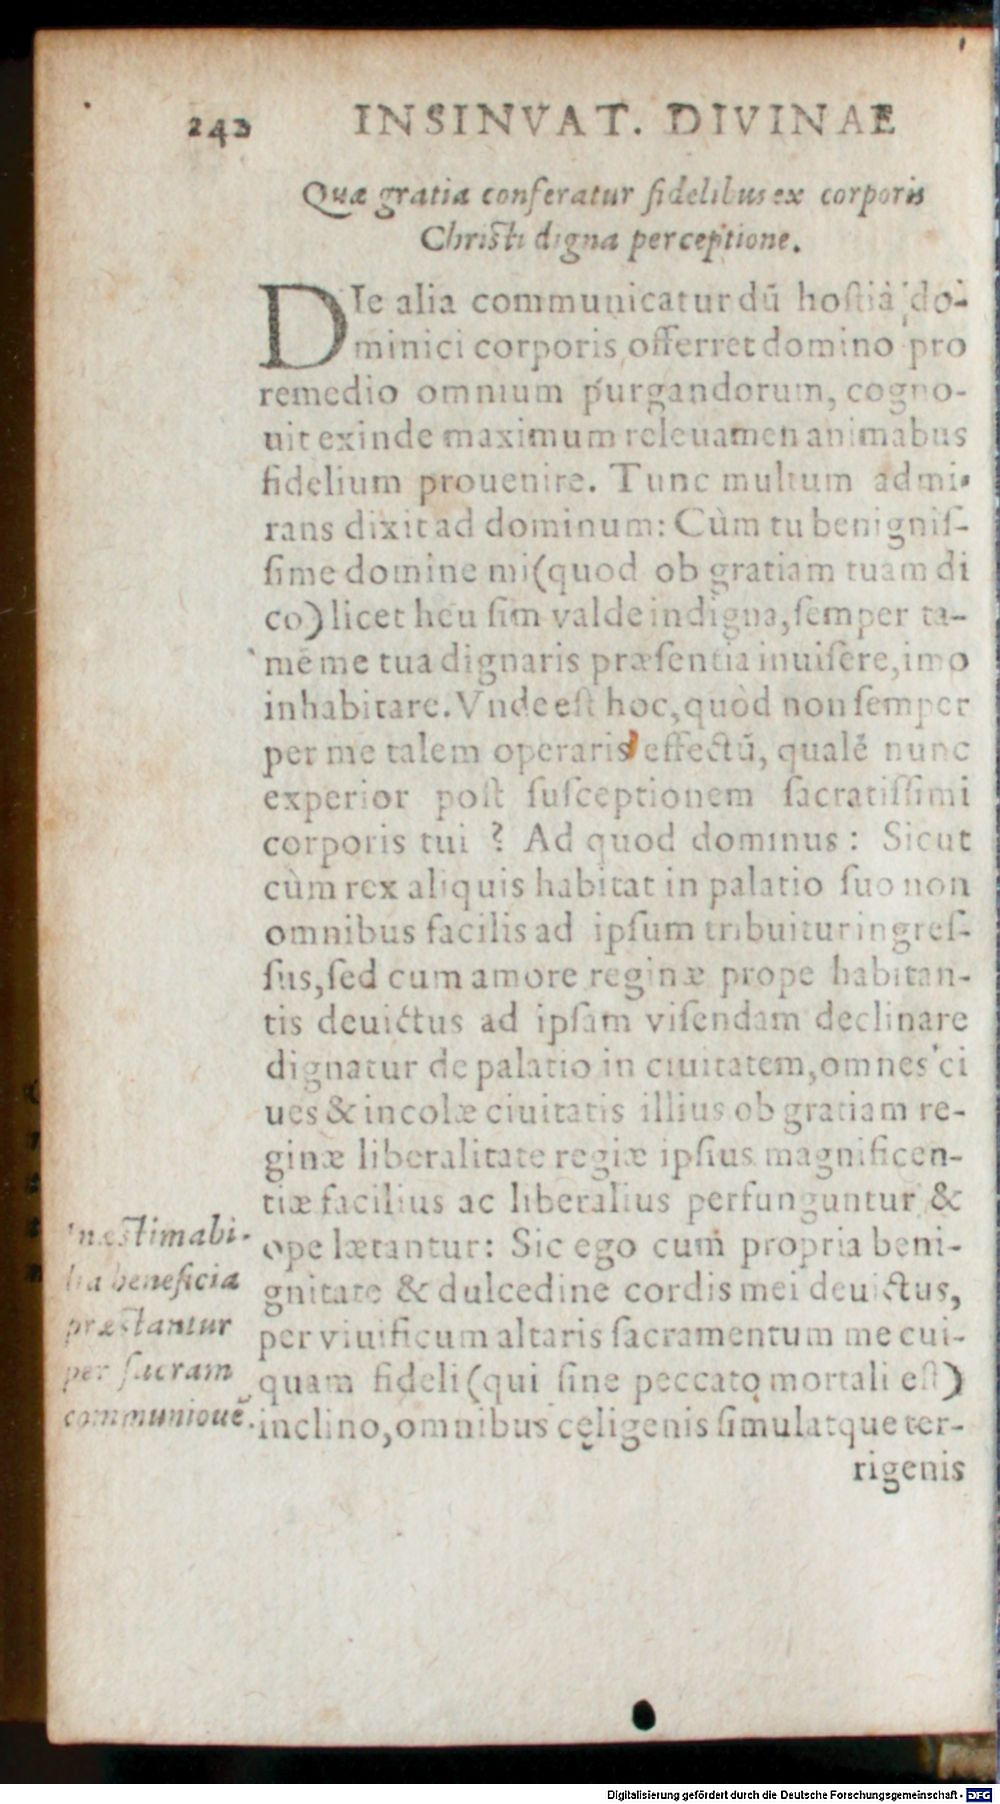 242 INSINVAT. DIVINAE
Quæ gratia conferatur fidelibus ex corporis
Christi digna perceptione.
DIe alia communicatur dū hostiā do-
minici corporis offerret domino pro
remedio omnium purgandorum, cogno-
uit exinde maximum releuamen animabus
fidelium prouenire. Tunc multum admi-
rans dixit ad dominum: Cùm tu benignis-
sime domine mi (quod ob gratiam tuam di
co) licet heu sim valde indigna, semper ta-
mē me tua dignaris præsentia inuisere, imo
inhabitare. Vnde est hoc, quòd non semper
per me talem operaris effectū, qualē nunc
experior post susceptionem sacratissimi
corporis tui ? Ad quod dominus : Sicut
cùm rex aliquis habitat in palatio suo non
omnibus facilis ad ipsum tribuitur ingres-
sus, sed cum amore reginæ prope habitan-
tis deuictus ad ipsam visendam declinare
dignatur de palatio in ciuitatem, omnes ci
ues & incolæ ciuitatis illius ob gratiam re-
ginæ liberalitate regiæ ipsius magnificen-
tiæ facilius ac liberalius perfunguntur &
ope lætantur: Sic ego cum propria beni-
gnitate & dulcedine cordis mei deuictus,
per viuificum altaris sacramentum me cui-
quam fideli (qui sine peccato mortali est)
inclino, omnibus cęligenis simulatque ter-
rigenis
Inæstimabi-
lia beneficia
præstantur
per sacram
communionē.
Digitalisierung gefördert durch die Deutsche Forschungsgemeinschaft - DFG